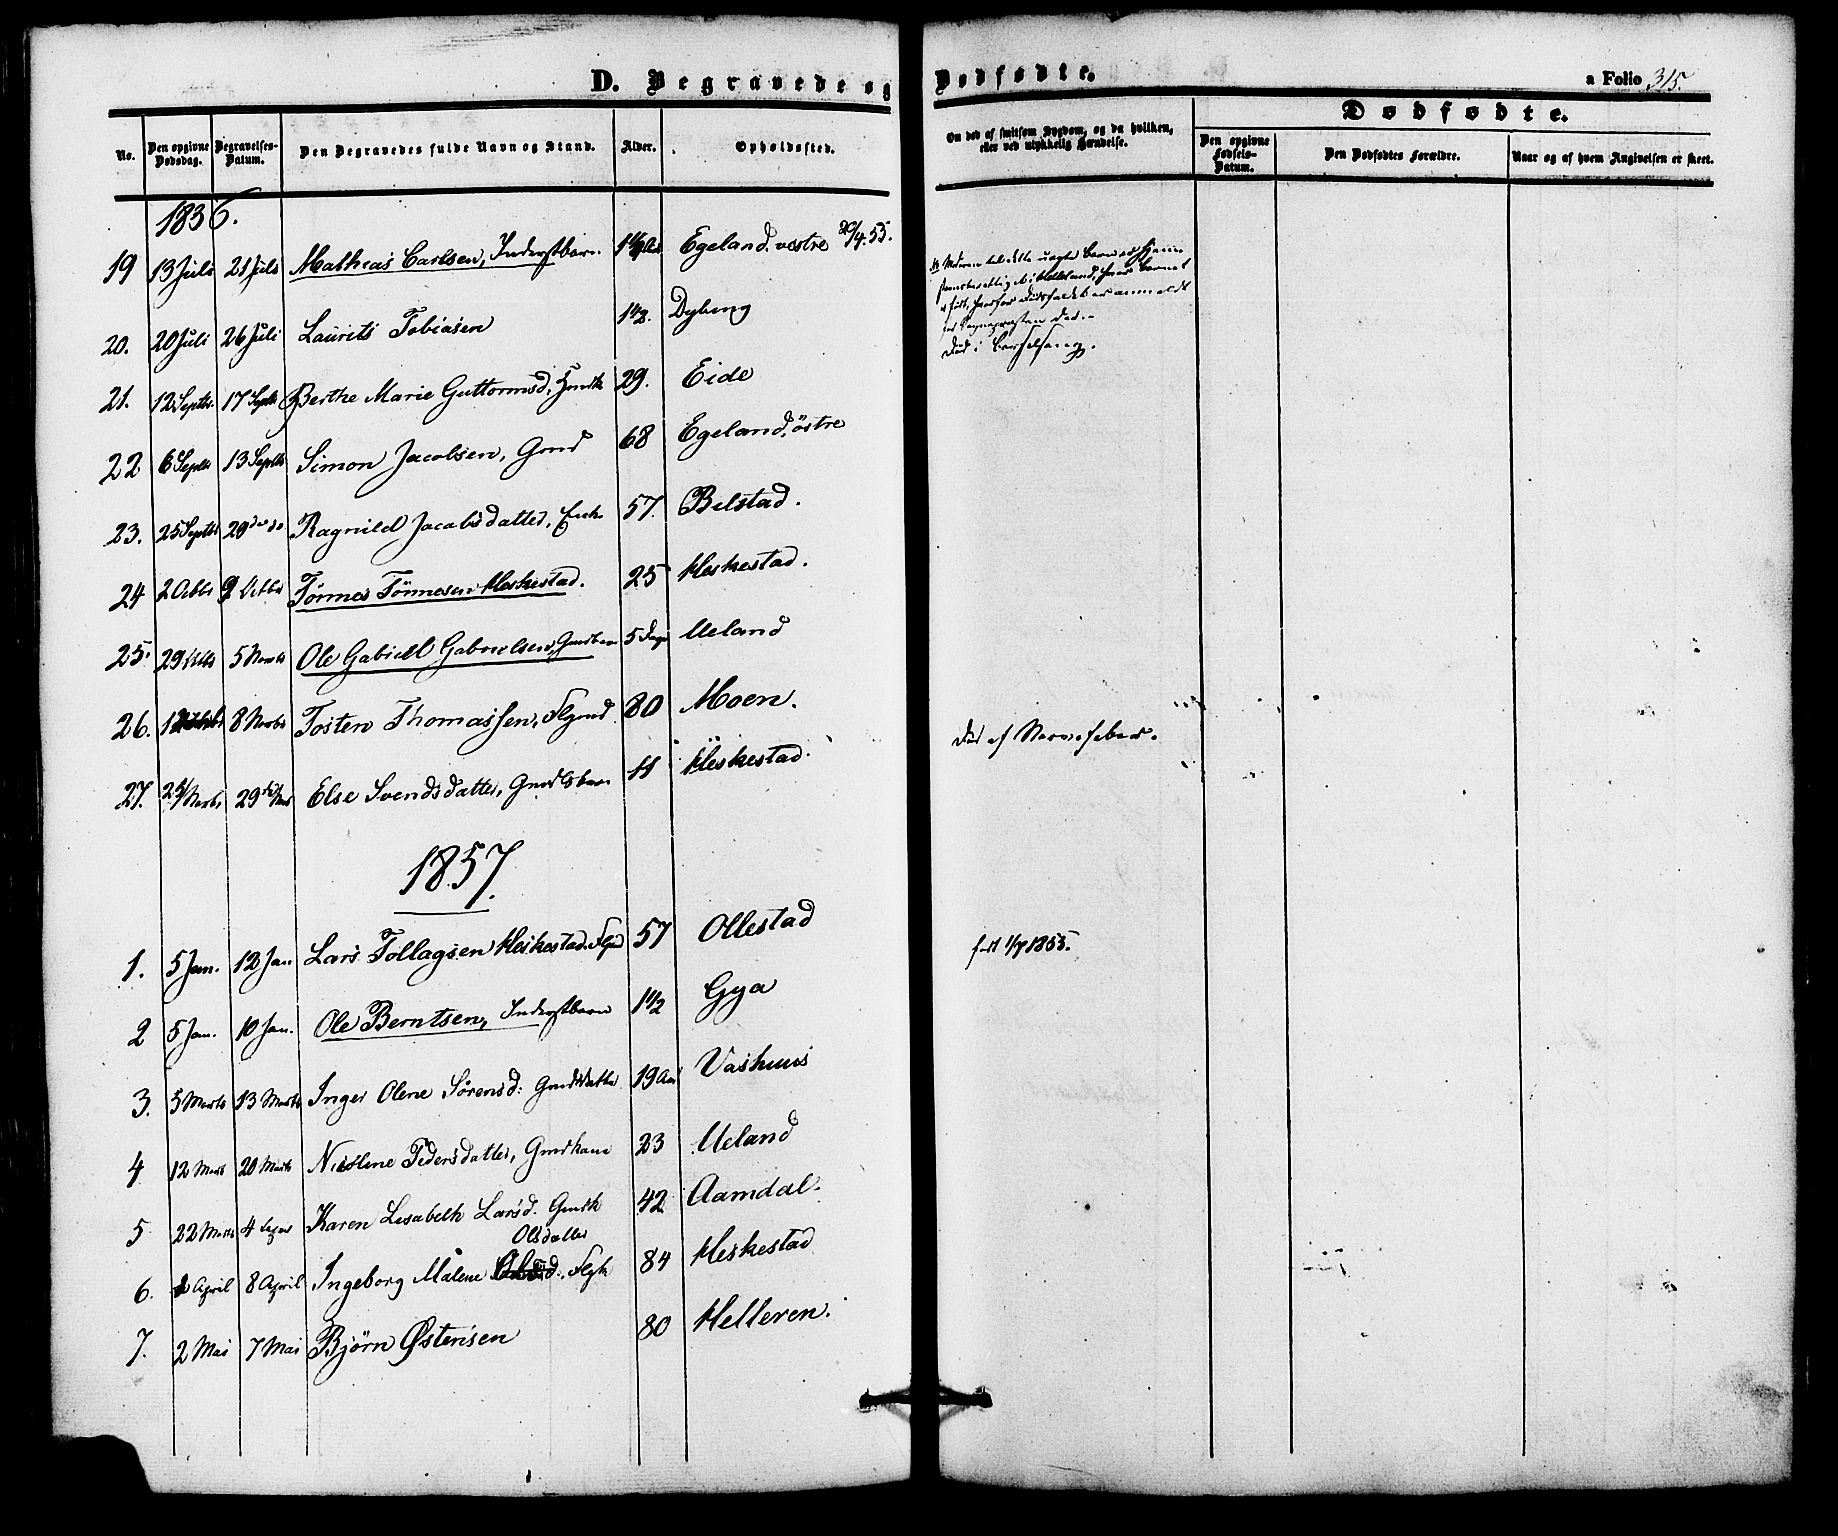 D. Begravede og Dødfødte. a Folio 315.
No. Den opgivne Dødsdag. Begravelses-Datum. Den Begravedes fulde Navn og Stand. Alder. Opholdssted. Om død af smitsom Sygdom, og da hvilken, eller ved ulykkelig Hændelse. Dødfødte. Den opgivne Fødsels-Datum. Den Dødfødtes Forældre. Naar og af hvem Angivelsen er skeet.
1856.
19 13 Juli 21 Juli Mathias Carlsen, Inderstbarn. Egeland vestre 20/4.55.
20. 20 Juli 26 Juli Laurits Tobiasen 1 1/2. Dybing
21. 12 Septbr. 17 Septb Berthe Marie Guttormsd, Gmdk 29. Eide
Død i Barselseng.
22 6 Septb 13 Septb Simon Jacobsen, Gmd 68 Egeland, östre
23. 25 Septbr 29 do Ragnild Jacobsdatter, Enke 57. Bilstad.
24 2 Octbr 9 Octbr Tönnes Tönnesen Heskestad. 25 Heskestad.
25. 29 5 Novbr Ole Gabriel Gabrielsen, Gmdbarn 5 Dage Ueland
26. 8 Novbr Tosten Thomassen, Flgmd 80 Moen.
27. 24 Novbr 29 Else Svendsdatter, Gmdsbarn 11 Heskestad.
Död af Nervefeber.
1857.
1. 5 Jan. 12 Jan Lars Tollagsen Heskestad. 57 Ollestad
2 5 Jan. 10 Jan. Ole Berntsen, Inderstbarn 1 1/2 Gya
født 1/7 1855.
3. 5 Marts 13 Marts Inger Olene Sörensd: Gmdsdatter 19 Aar Vashuus
4 12 Marts 20 Marts Nicoline Pedersdatter, Gmdkone 23 Ueland
5 22 Marts 4 Karen Lisabeth Larsd. Gmdk 42 Aamdal.
6. April 8 April Ingeborg Malene Olsdatter Flgk 84 Heskestad
7. 2 Mai 7 Mai Björn Østensen 80 Helleren.